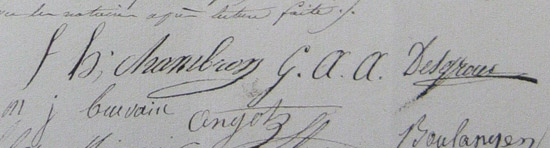 les notaires après lecture faite ./.
f h; chambron G. A. A. Desgroux
m j burvain angot Boulangen